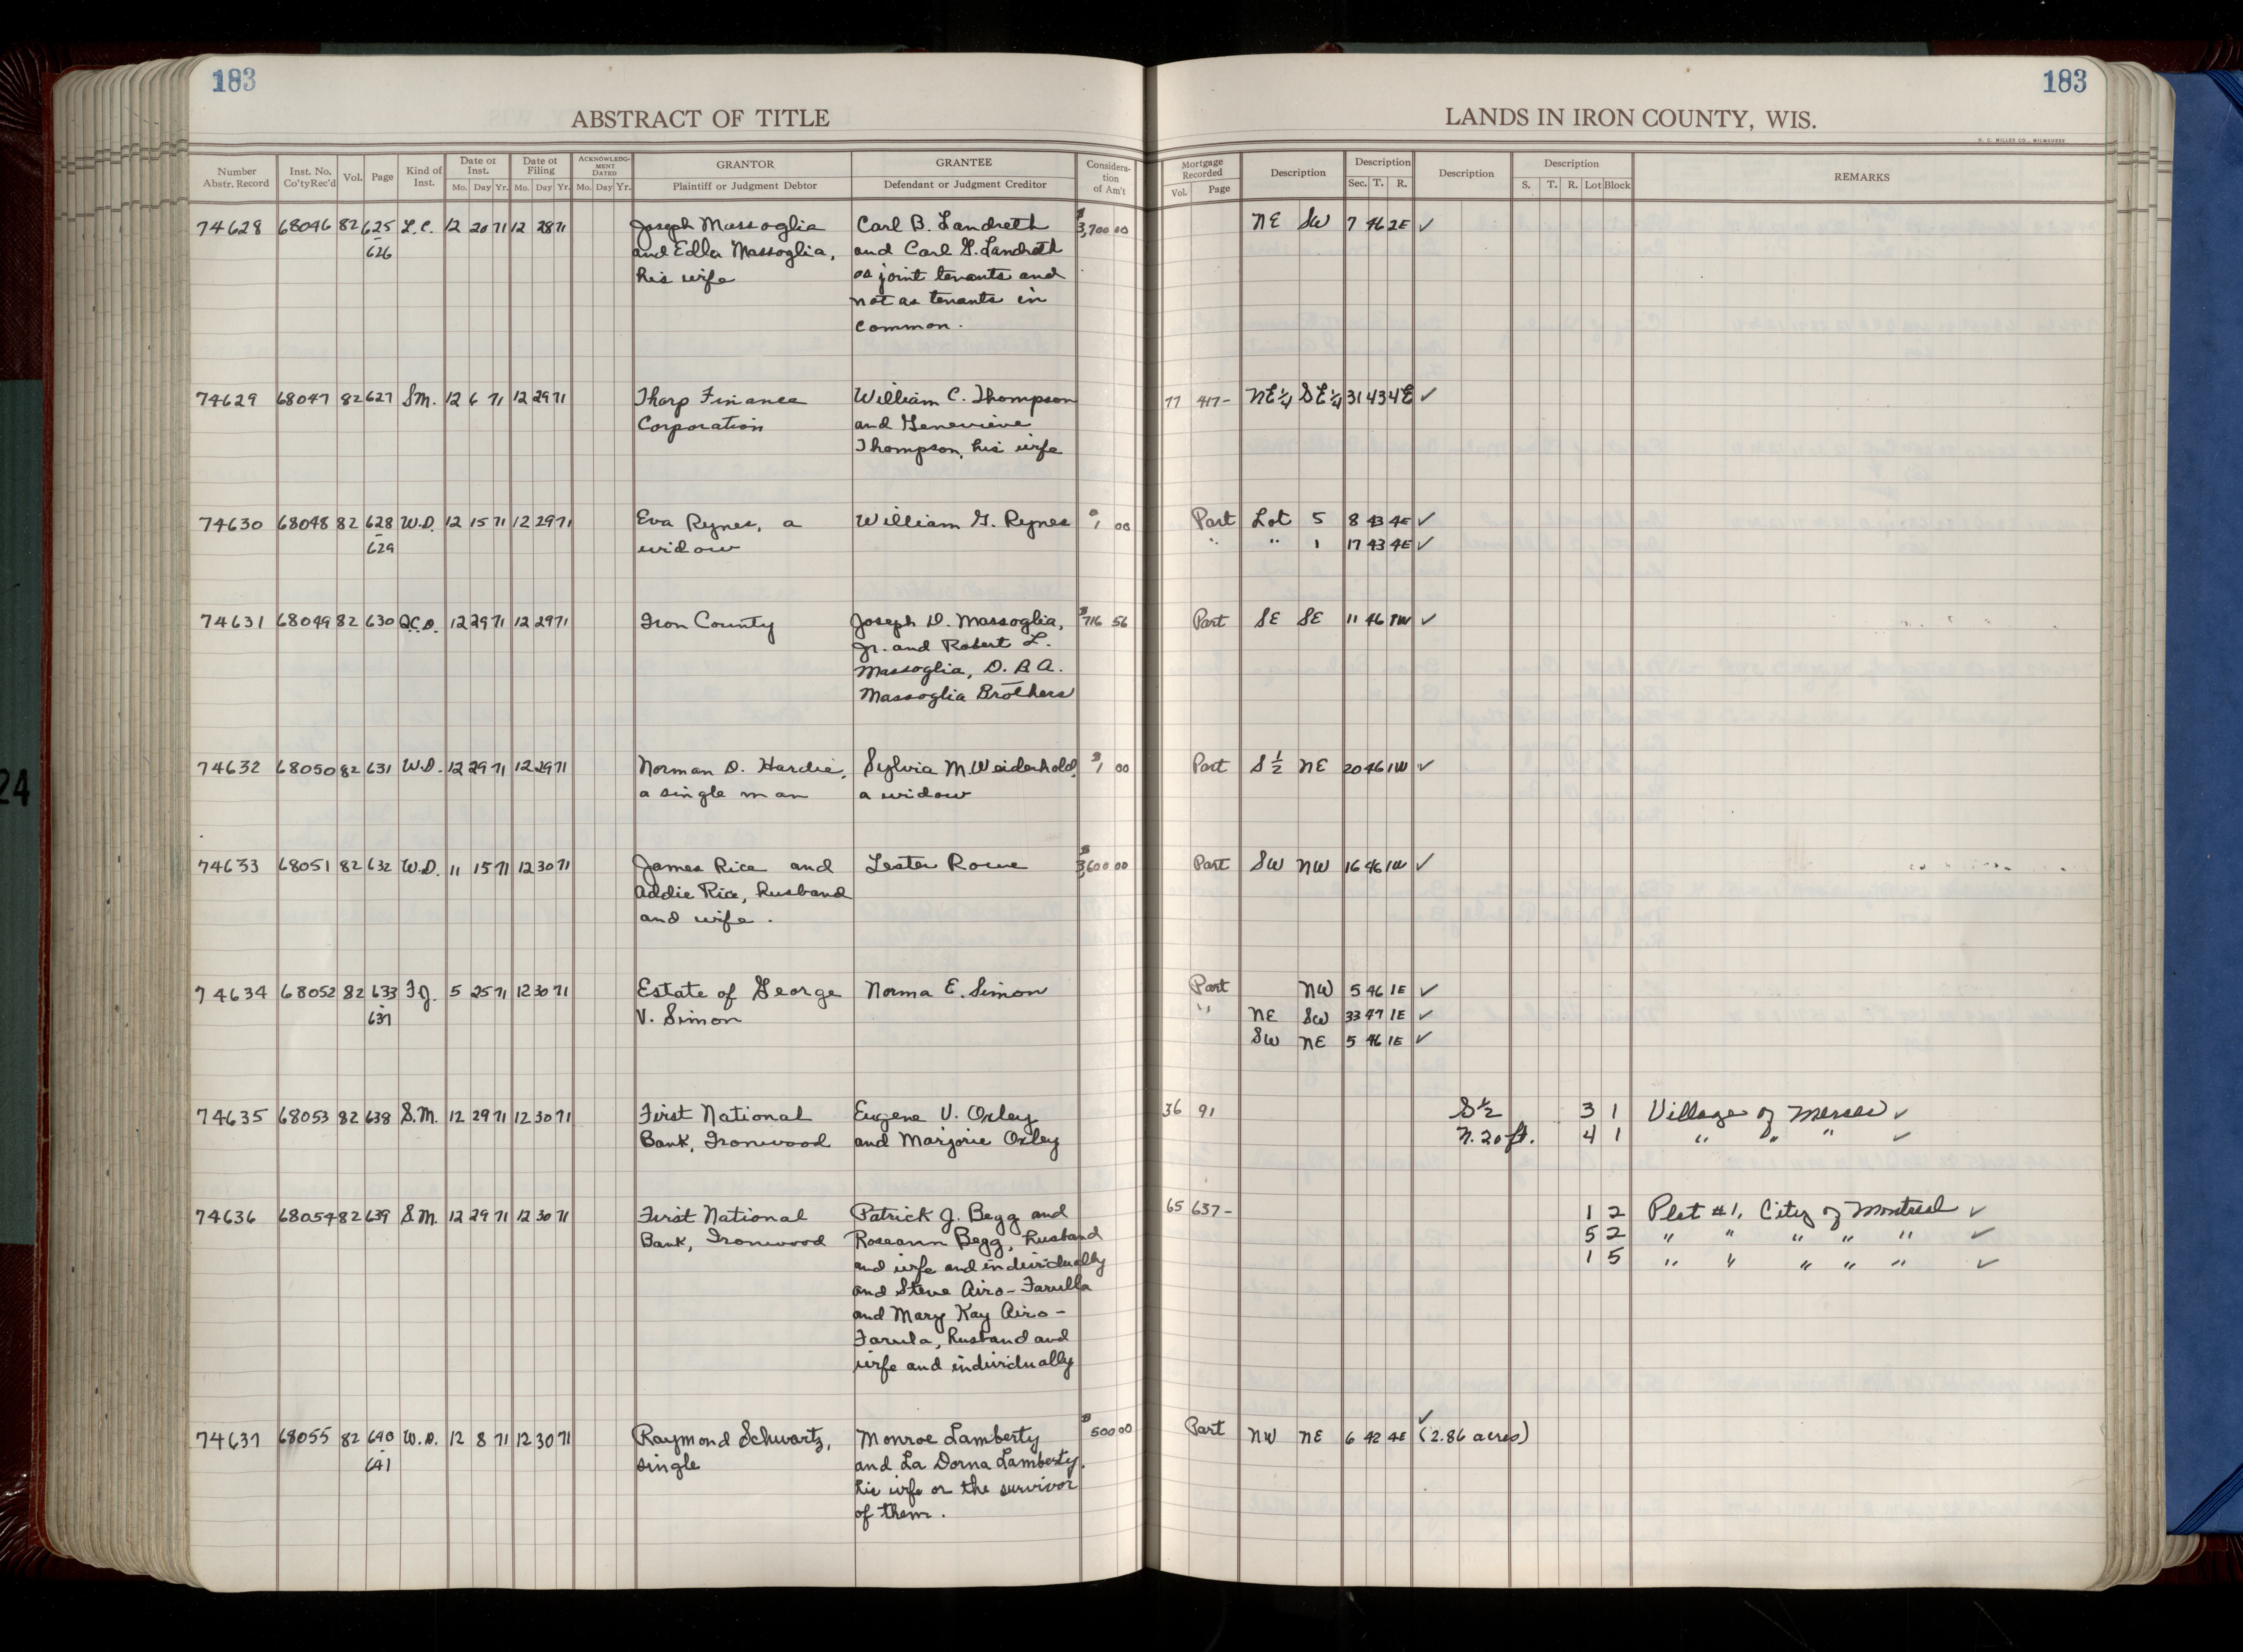 183 183
ABSTRACT OF TITLE LANDS IN IRON COUNTY, WIS.
H. C. MILLER CO., MILWAUKEE
Number Abstr. Record Inst. No. Co'tyRec'd Vol. Page Kind of Inst. Date of Inst. Mo. Day Yr. Date of Filing Mo. Day Yr. ACKNOWLEDGMENT DATED Mo. Day Yr. GRANTOR Plaintiff or Judgment Debtor GRANTEE Defendant or Judgment Creditor Consideration of Am't Mortgage Recorded Vol. Page Description Description Sec. T. R. Description Description S. T. R. Lot Block REMARKS
74628 68046 82 625 L.C. 12 20 71 12 28 71 Joseph Massoglia Carl B. Landreth $3,700 00 NE SW 7 46 2E ✓
626 and Edla Massoglia, and Carl G. Landreth
his wife as joint tenants and
not as tenants in
common.
74629 68047 82 627 S.M. 12 6 71 12 29 71 Thorp Finance William C. Thompson 77 417- NE¼ SE¼ 31 43 4E ✓
Corporation and Genevieve
Thompson, his wife
74630 68048 82 628 W.D. 12 15 71 12 29 71 Eva Rynes, a William G. Rynes $1 00 Part Lot 5 8 43 4E ✓
629 widow " " 1 17 43 4E ✓
74631 68049 82 630 Q.C.D. 12 29 71 12 29 71 Iron County Joseph D. Massoglia, $716 56 Part SE SE 11 46 1W ✓
Jr. and Robert L.
Massoglia, D.B.A.
Massoglia Brothers
74632 68050 82 631 W.D. 12 29 71 12 29 71 Norman D. Hardie, Sylvia M. Weiderhold, $1 00 Part S½ NE 20 46 1W ✓
a single man a widow
74633 68051 82 632 W.D. 11 15 71 12 30 71 James Rice and Lester Rowe $3,600 00 Part SW NW 16 46 1W ✓
Addie Rice, husband
and wife.
74634 68052 82 633 F.J. 5 25 71 12 30 71 Estate of George Norma E. Simon Part NW 5 46 1E ✓
637 V. Simon " NE SW 33 47 1E ✓
SW NE 5 46 1E ✓
74635 68053 82 638 S.M. 12 29 71 12 30 71 First National Eugene V. Oxley 36 91 S½ 3 1 Village of Mercer ✓
Bank, Ironwood and Marjorie Oxley N. 20 ft. 4 1 " " " ✓
74636 68054 82 639 S.M. 12 29 71 12 30 71 First National Patrick J. Begg and 65 637- 1 2 Plat #1, City of Montreal ✓
Bank, Ironwood Roseann Begg, husband 5 2 " " " " " ✓
and wife and individually 1 5 " " " " " ✓
and Steve Airo-Farulla
and Mary Kay Airo-
Farula, husband and
wife and individually
74637 68055 82 640 W.D. 12 8 71 12 30 71 Raymond Schwartz, Monroe Lamberty $500 00 Part NW NE 6 42 4E ✓ (2.86 acres)
641 single and La Dorna Lamberty,
his wife or the survivor
of them.
24